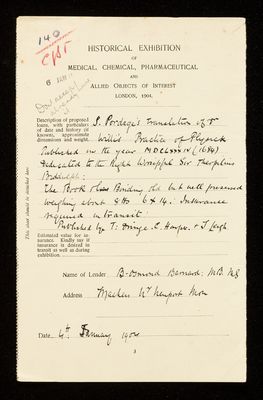 140
HISTORICAL EXHIBITION
OF
MEDICAL, CHEMICAL, PHARMACEUTICAL
AND
ALLIED OBJECTS OF INTEREST
LONDON, 1904.
Description of proposed
loans, with particulars
of date and history (if
known), approximate
dimensions and weight.
S. Pordage's Translation of Dr
Willis' Practice of Physick
Published in the year MDCLXXXIV (1684)
Dedicated to the Right Worshipful Sir Theophilus
Biddulph:
The Book Binding old but well preserved
weighing about lbs 6 & 14: Insurance
required in transit:
Published by T: Dring. C. Harper. & J. Leigh
Estimated value for in-
surance. Kindly say if
insurance is desired in
transit as well as during
exhibition.
This side should be attached here
Name of Lender B. Barnard: M.B.
Address Machen Nr Newport Mon
Date 4th January 1904
3